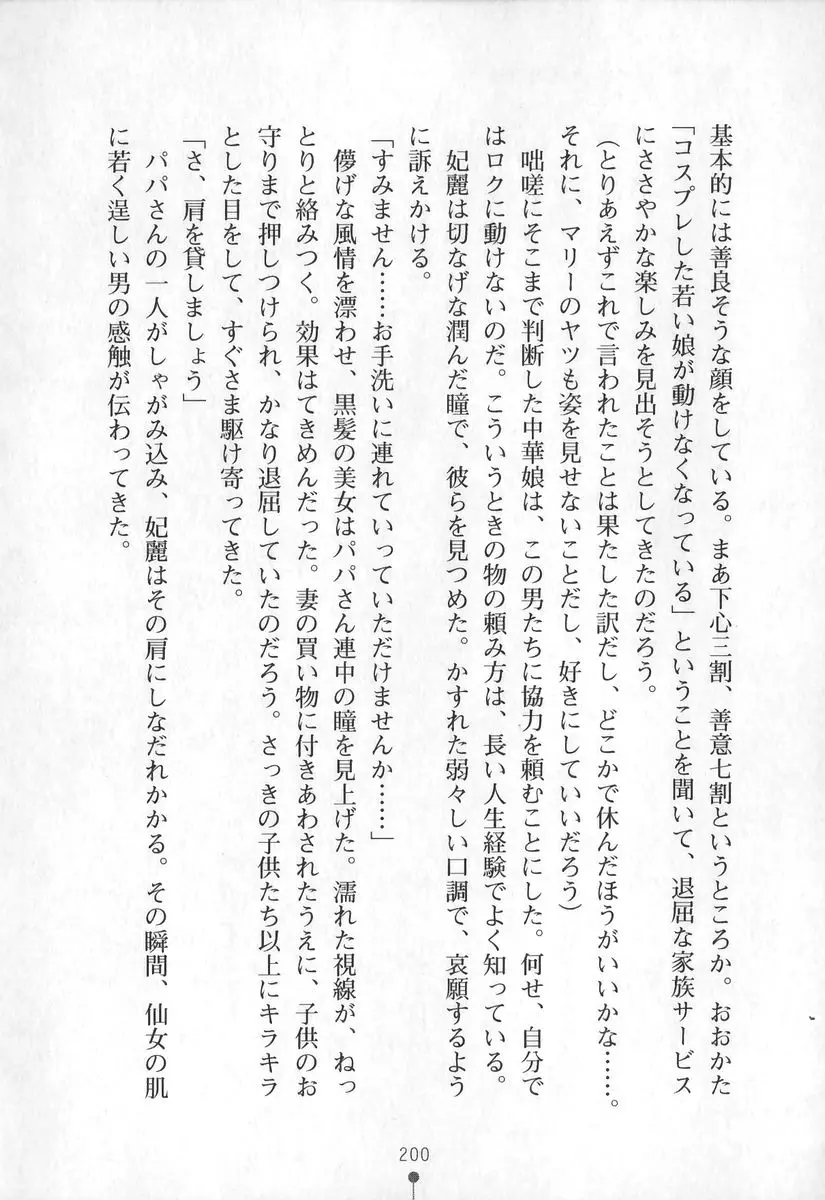 基本的には善良そうな顔をしている。まあ下心三割、善意七割というところか。おおかた
「コスプレした若い娘が動けなくなっている」ということを聞いて、退屈な家族サービス
にささやかな楽しみを見出そうとしてきたのだろう。
(とりあえずこれで言われたことは果たした訳だし、どこかで休んだほうがいいかな……。
それに、マリーのヤツも姿を見せないことだし、好きにしていいだろう)
　咄嗟にそこまで判断した中華娘は、この男たちに協力を頼むことにした。何せ、自分で
はロクに動けないのだ。こういうときの物の頼み方は、長い人生経験でよく知っている。
　妃麗は切なげな潤んだ瞳で、彼らを見つめた。かすれた弱々しい口調で、哀願するよう
に訴えかける。
「すみません……お手洗いに連れていっていただけませんか……」
　儚げな風情を漂わせ、黒髪の美女はパパさん連中の瞳を見上げた。濡れた視線が、ねっ
とりと絡みつく。効果はてきめんだった。妻の買い物に付きあわされたうえに、子供のお
守りまで押しつけられ、かなり退屈していたのだろう。さっきの子供たち以上にキラキラ
とした目をして、すぐさま駆け寄ってきた。
「さ、肩を貸しましょう」
　パパさんの一人がしゃがみ込み、妃麗はその肩にしなだれかかる。その瞬間、仙女の肌
に若く逞しい男の感触が伝わってきた。
200